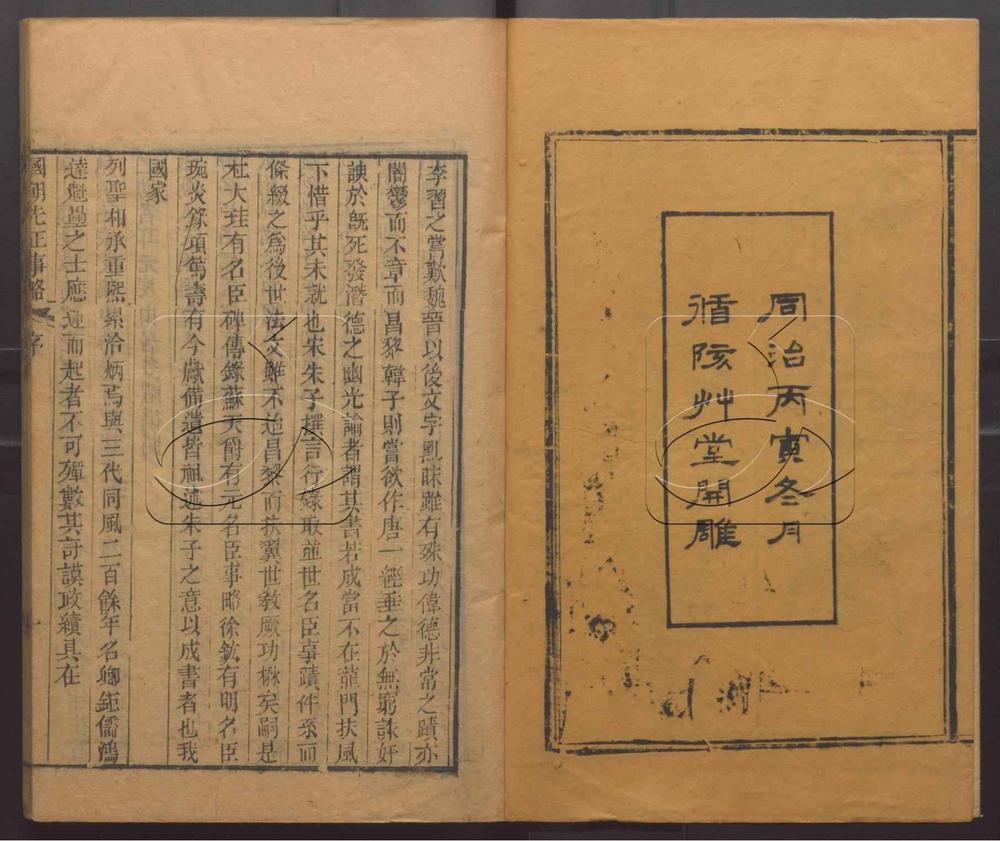 同治丙寅冬月
循陔艸堂開雕
李習之嘗歎魏晉以後文字黯昧雖有殊功偉德非常之蹟亦
闇鬱而不章而昌黎韓子則嘗欲作唐一經垂之於無窮誅奸
諛於旣死發潛德之幽光論者謂其書若成當不在龍門扶風
下惜乎其未就也宋朱子撰言行錄取並世名臣事蹟件系而
條綴之爲後世法文雖不逮昌黎而扶翼世敎厥功楙矣嗣是
杜大珪有名臣碑傳錄蘇天爵有元名臣事略徐紘有明名臣
琬炎錄項篤壽有今獻備遺皆祖述朱子之意以成書者也我
國家
列聖相承重熙累洽炳焉與三代同風二百餘年名卿鉅儒鴻
達魁壘之士應運而起者不可殫數其訏謨政績具在
國朝先正事略 序 一